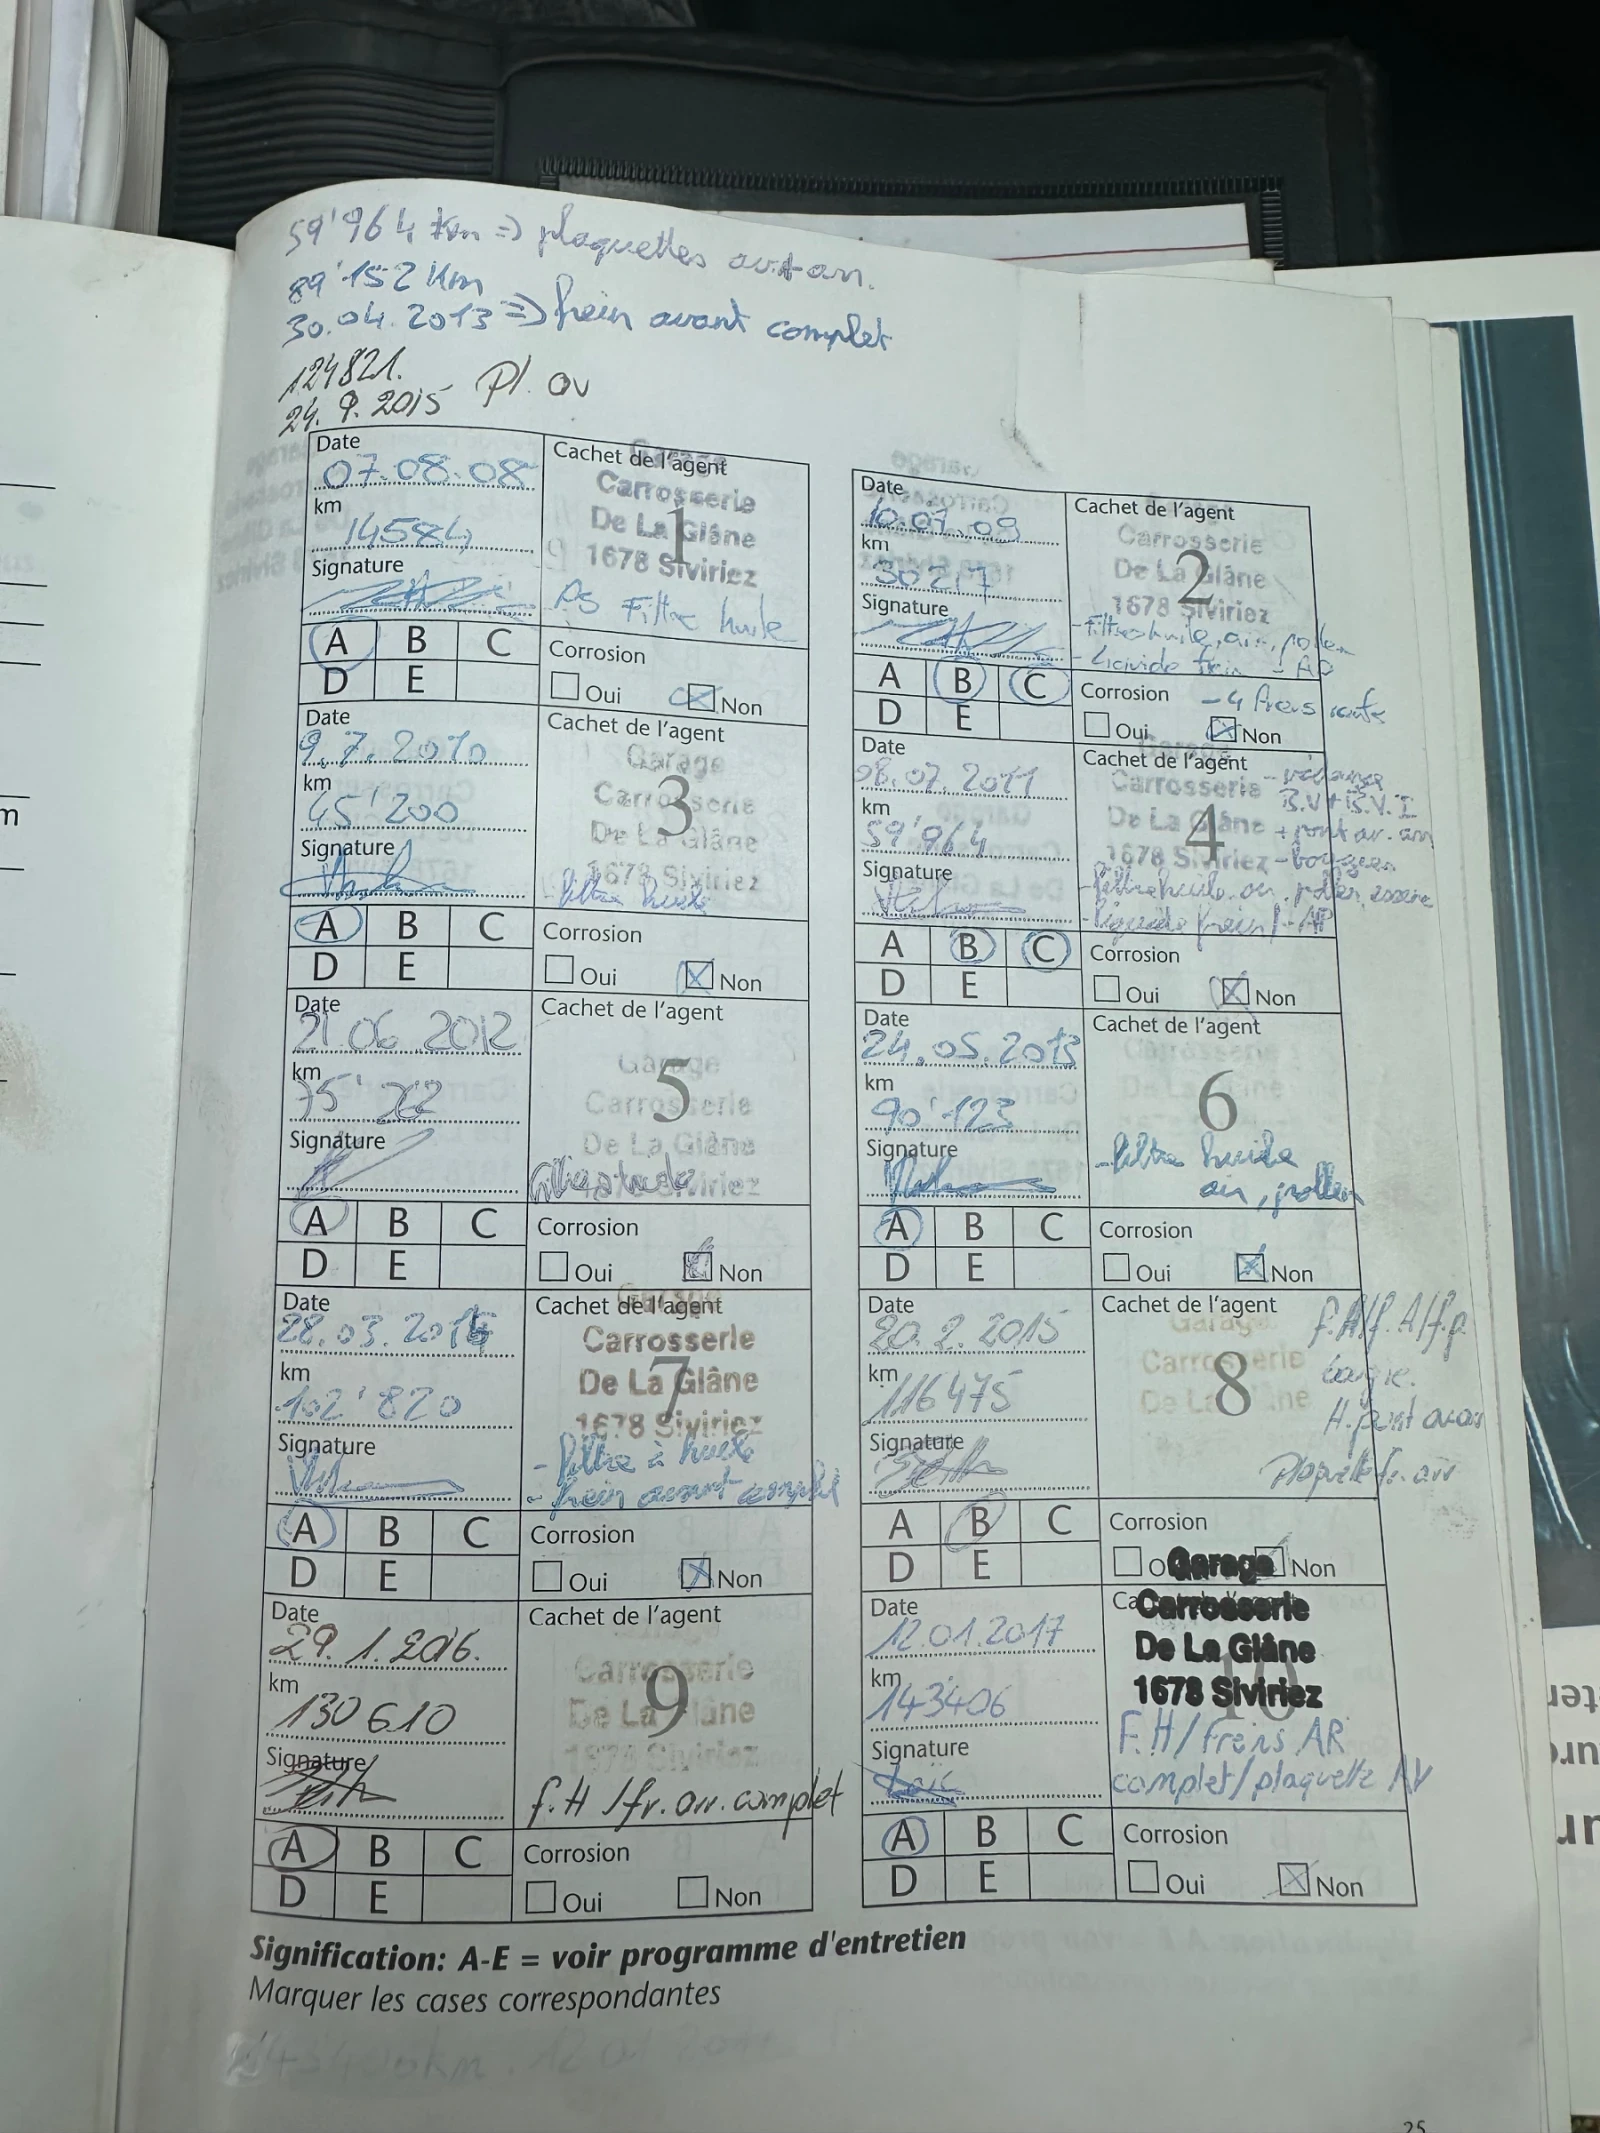 59'964 km => plaquettes av+an.
89'152 Km
30.04.2013 => frein avant complet
124821.
24.9.2015 Pl. av
Date
07.08.08
km
14584
Signature
Cachet de l'agent
Garage
Carrosserie
De La Glâne
1678 Siviriez
1
Filtre huile
A B C
D E
Corrosion
Oui Non
Date
10.07.09
km
Signature
Cachet de l'agent
Carrosserie
De La Glâne
1678 Siviriez
2
- Filtres huile, air, pollen
frein
- 4 freins
A B C
D E
Corrosion
Oui Non
Date
9.7.2010
km
45'200
Signature
Cachet de l'agent
Garage
Carrosserie
De La Glâne
1678 Siviriez
3
- filtre huile
A B C
D E
Corrosion
Oui Non
Date
08.07.2011
km
59'964
Signature
Cachet de l'agent
Garage
Carrosserie
De La Glâne
1678 Siviriez
4
- vidange
B.V + B.V.I
+ pont av. arr
- bougies
- filtre huile, air, pollen, essence
- liquide frein
A B C
D E
Corrosion
Oui Non
Date
21.06.2012
km
Signature
Cachet de l'agent
Garage
Carrosserie
De La Glâne
1678 Siviriez
5
A B C
D E
Corrosion
Oui Non
Date
24.05.2013
km
90'123
Signature
Cachet de l'agent
Carrosserie
De La Glâne
6
- filtre huile
air, pollen
A B C
D E
Corrosion
Oui Non
Date
28.03.2014
km
102'820
Signature
Cachet de l'agent
Garage
Carrosserie
De La Glâne
1678 Siviriez
7
- filtre à huile
- frein avant complet
A B C
D E
Corrosion
Oui Non
Date
20.2.2015
km
116475
Signature
Cachet de l'agent
Garage
Carrosserie
De La Glâne
8
Plaquette fr. arr
A B C
D E
Corrosion
Oui Non
Date
29.1.2016.
km
130610
Signature
Cachet de l'agent
Carrosserie
De La Glâne
1678 Siviriez
9
f.H / fr. arr. complet
A B C
D E
Corrosion
Oui Non
Date
12.01.2017
km
143406
Signature
Loïc
Garage
Carrosserie
De La Glâne
1678 Siviriez
10
F.H / Freins AR
complet / plaquette AV
A B C
D E
Corrosion
Oui Non
Signification: A-E = voir programme d'entretien
Marquer les cases correspondantes
25